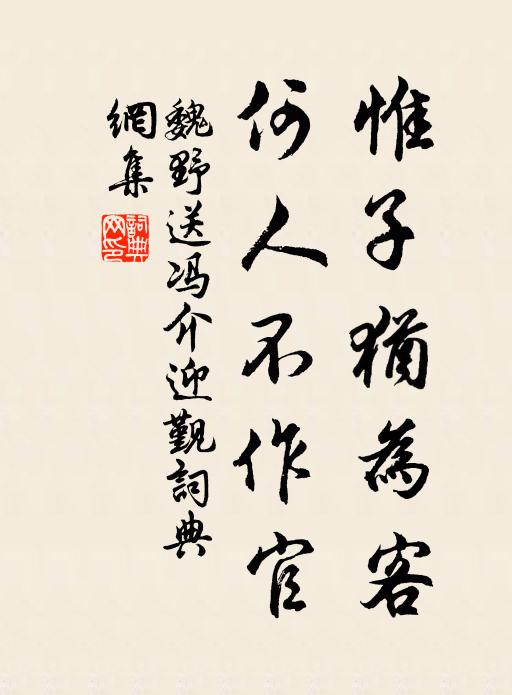 惟子猶為客
何人不作官
魏野送冯介迎觐詞典
網集
詞典
网印